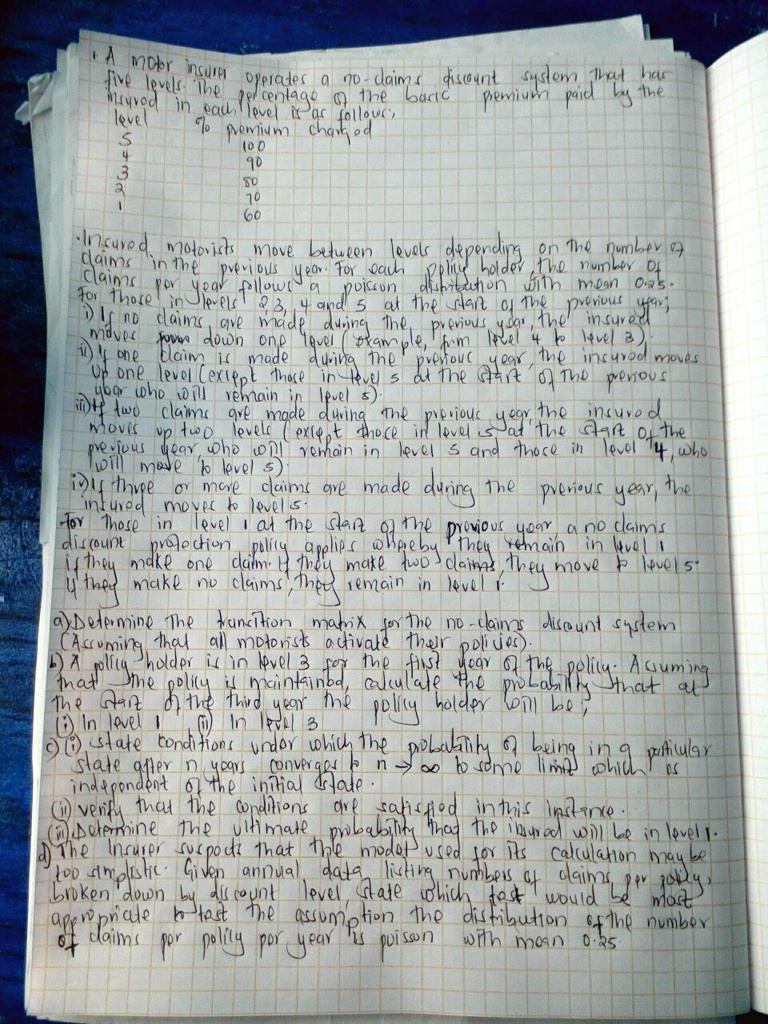 1. A motor insurer operates a no-claims discount system that has
five levels. The percentage of the basic premium paid by the
insured in each level is as follows;
level % premium charged
5 100
4 90
3 80
2 70
1 60
Insured motorists move between levels depending on the number of
claims in the previous year. For each policy holder, the number of
claims per year follows a poisson distribution with mean 0.25.
For those in levels 2,3, 4 and 5 at the start of the previous year;
i) If no claims are made during the previous year, the insured
moves down one level (example, from level 4 to level 3).
ii) If one claim is made during the previous year, the insured moves
up one level (except those in level 5 at the start of the previous
year who will remain in level 5).
iii) If two claims are made during the previous year, the insured
moves up two levels (except those in level 5 at the start of the
previous year who will remain in level 5 and those in level 4, who
will move to level 5).
iv) If three or more claims are made during the previous year, the
insured moves to level 5.
For those in level 1 at the start of the previous year a no claims
discount protection policy applies whereby they remain in level 1
if they make one claim. If they make two claims, they move to level 5.
If they make no claims, they remain in level 1.
a) Determine the transition matrix for the no-claims discount system
(Assuming that all motorists activate their policies).
b) A policy holder is in level 3 for the first year of the policy. Assuming
that the policy is maintained, calculate the probability that at
the start of the third year the policy holder will be;
(i) In level 1 (ii) In level 3
c) (i) state conditions under which the probability of being in a particular
state after n years converges to n → ∞ to some limit which is
independent of the initial state.
(ii) verify that the conditions are satisfied in this instance.
(iii) Determine the ultimate probability that the insured will be in level 1.
d) The Insurer suspects that the model used for its calculation may be
too simplistic. Given annual data listing numbers of claims per policy,
broken down by discount level, state which test would be most
appropriate to test the assumption the distribution of the number
of claims per policy per year is poisson with mean 0.25.